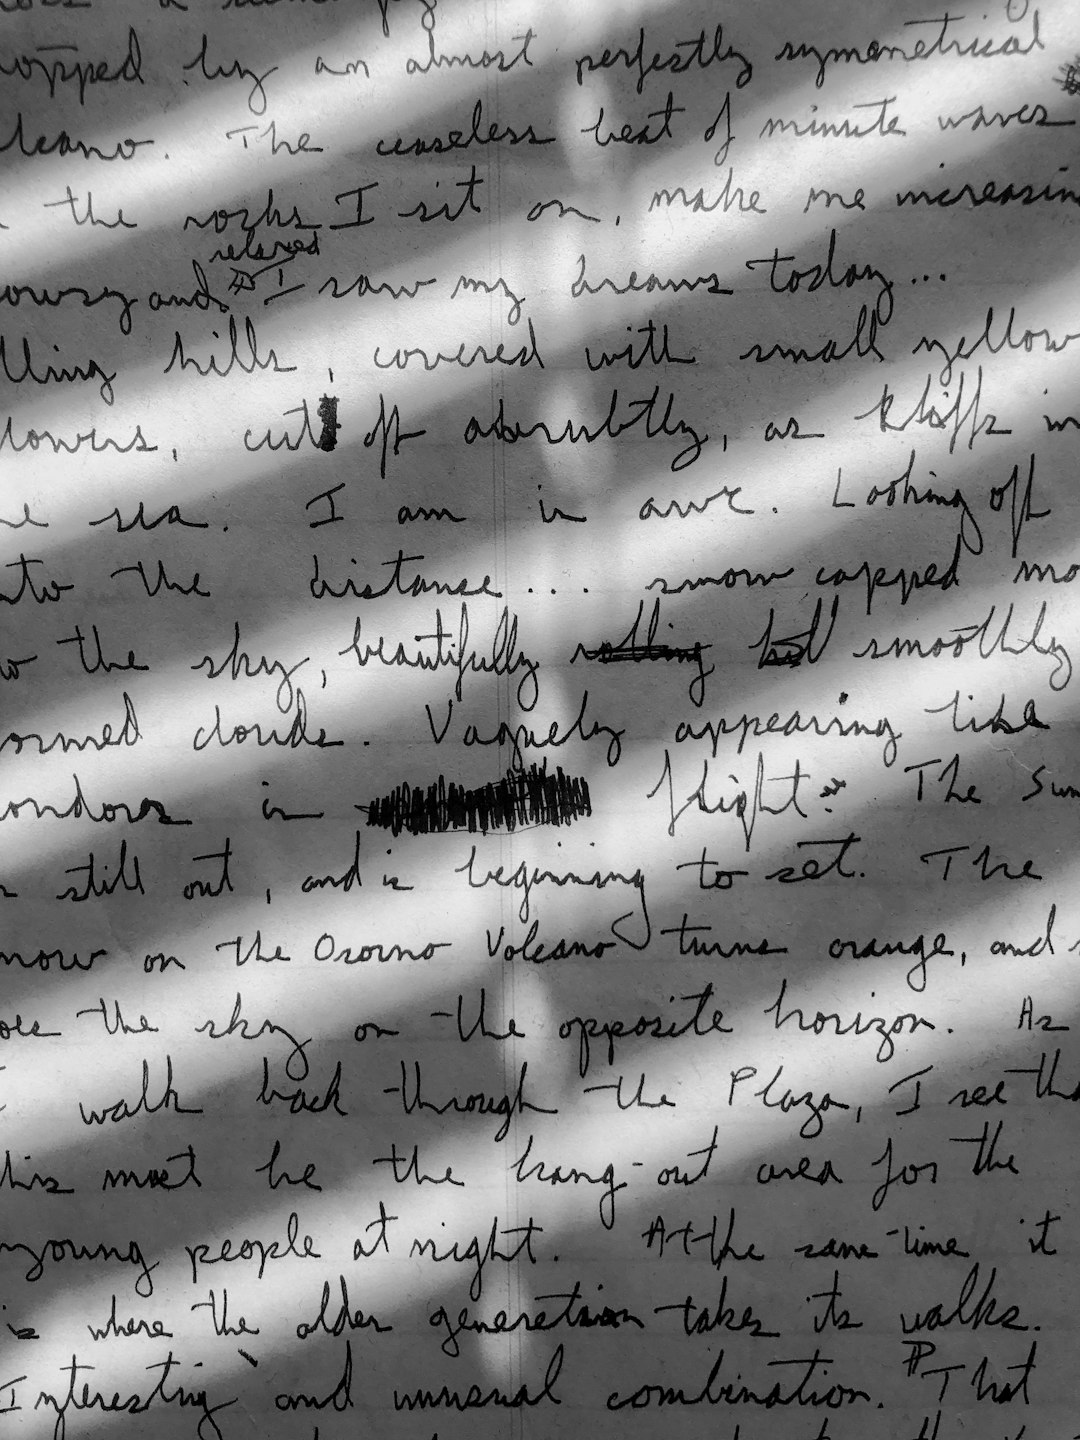 topped by an almost perfectly symmetrical
lcano. The ceaseless beat of minute waves
the rocks I sit on, make me increasin
relaxed
owsy and I saw my dreams today...
lling hills, covered with small yellow
lowers, cut off abrubtly, as kliffs in
e sea. I am in awe. Looking off
nto the distance... snow capped mo
to the sky, beautifully rolling hill smoothly
ormed clouds. Vaguely appearing like
ondors in flight. The Sun
still out, and is beginning to set. The
now on the Osorno Volcano turns orange, and s
oes the sky on the opposite horizon. As
I walk back through the Plaza, I see tha
his must be the hang-out area for the
young people at night. At the same time it
is where the older generetion takes its walks.
Interesting and unusual combination. That